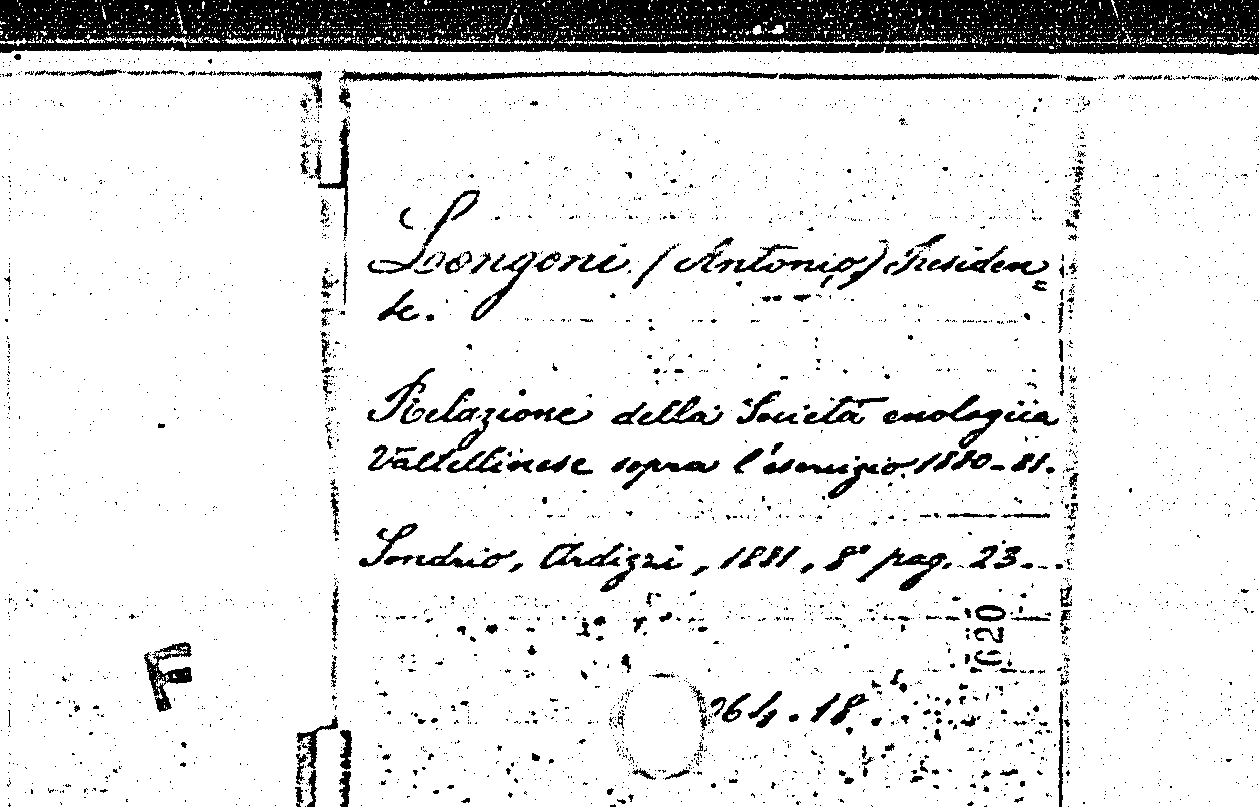 Longoni (Antonio) Presiden„
te.
Relazione della Società enologica
Valtellinese sopra l'esercizio 1880-81.
Sondrio, Ardizzi, 1881, 8° pag. 23.
620
F
264.18.